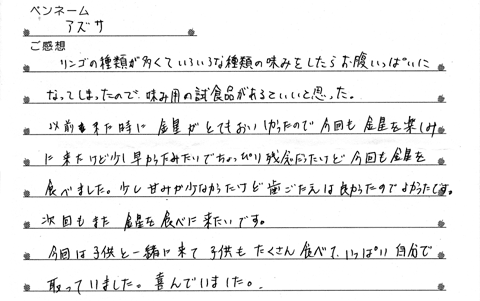 ペンネーム
アズサ
ご感想
リンゴの種類が多くていろいろな種類の味みをしたらお腹いっぱいに
なってしまったので、味み用の試食品があるといいと思った。
以前も来た時に金星がとてもおいしかったので今回も金星を楽しみ
に来たけど少し早かったみたいでちょっぴり残念だったけど今回も金星を
食べました。少し甘みが少なかったけど歯ごたえは良かったのでよかったです。
次回もまた金星を食べに来たいです。
今回は子供と一緒に来て子供もたくさん食べて、いっぱい自分で
取っていました。喜んでいました。